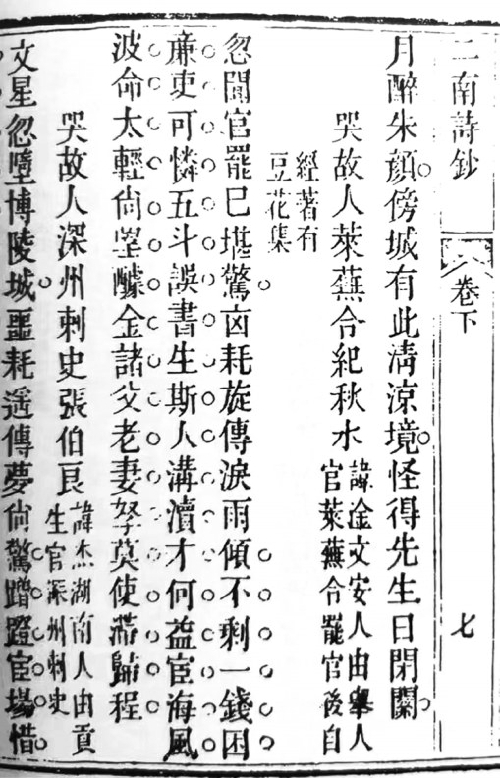 二南詩鈔
卷下
七
月醉朱顏傍城有此清涼境怪得先生日閉關
哭故人萊蕪令紀秋水
諱淦文安人由舉人
官萊蕪令罷官後自
經著有
豆花集
忽聞官罷已堪驚凶耗旋傳淚雨傾不剩一錢困
廉吏可憐五斗誤書生斯人溝瀆才何益宦海風
波命太輕尙望醵金諸父老妻孥莫使滯歸程
哭故人深州刺史張伯良
諱杰湖南人由貢
生官深州刺史
文星忽墮博陵城噩耗遥傳夢尙驚蹭蹬宦場惜